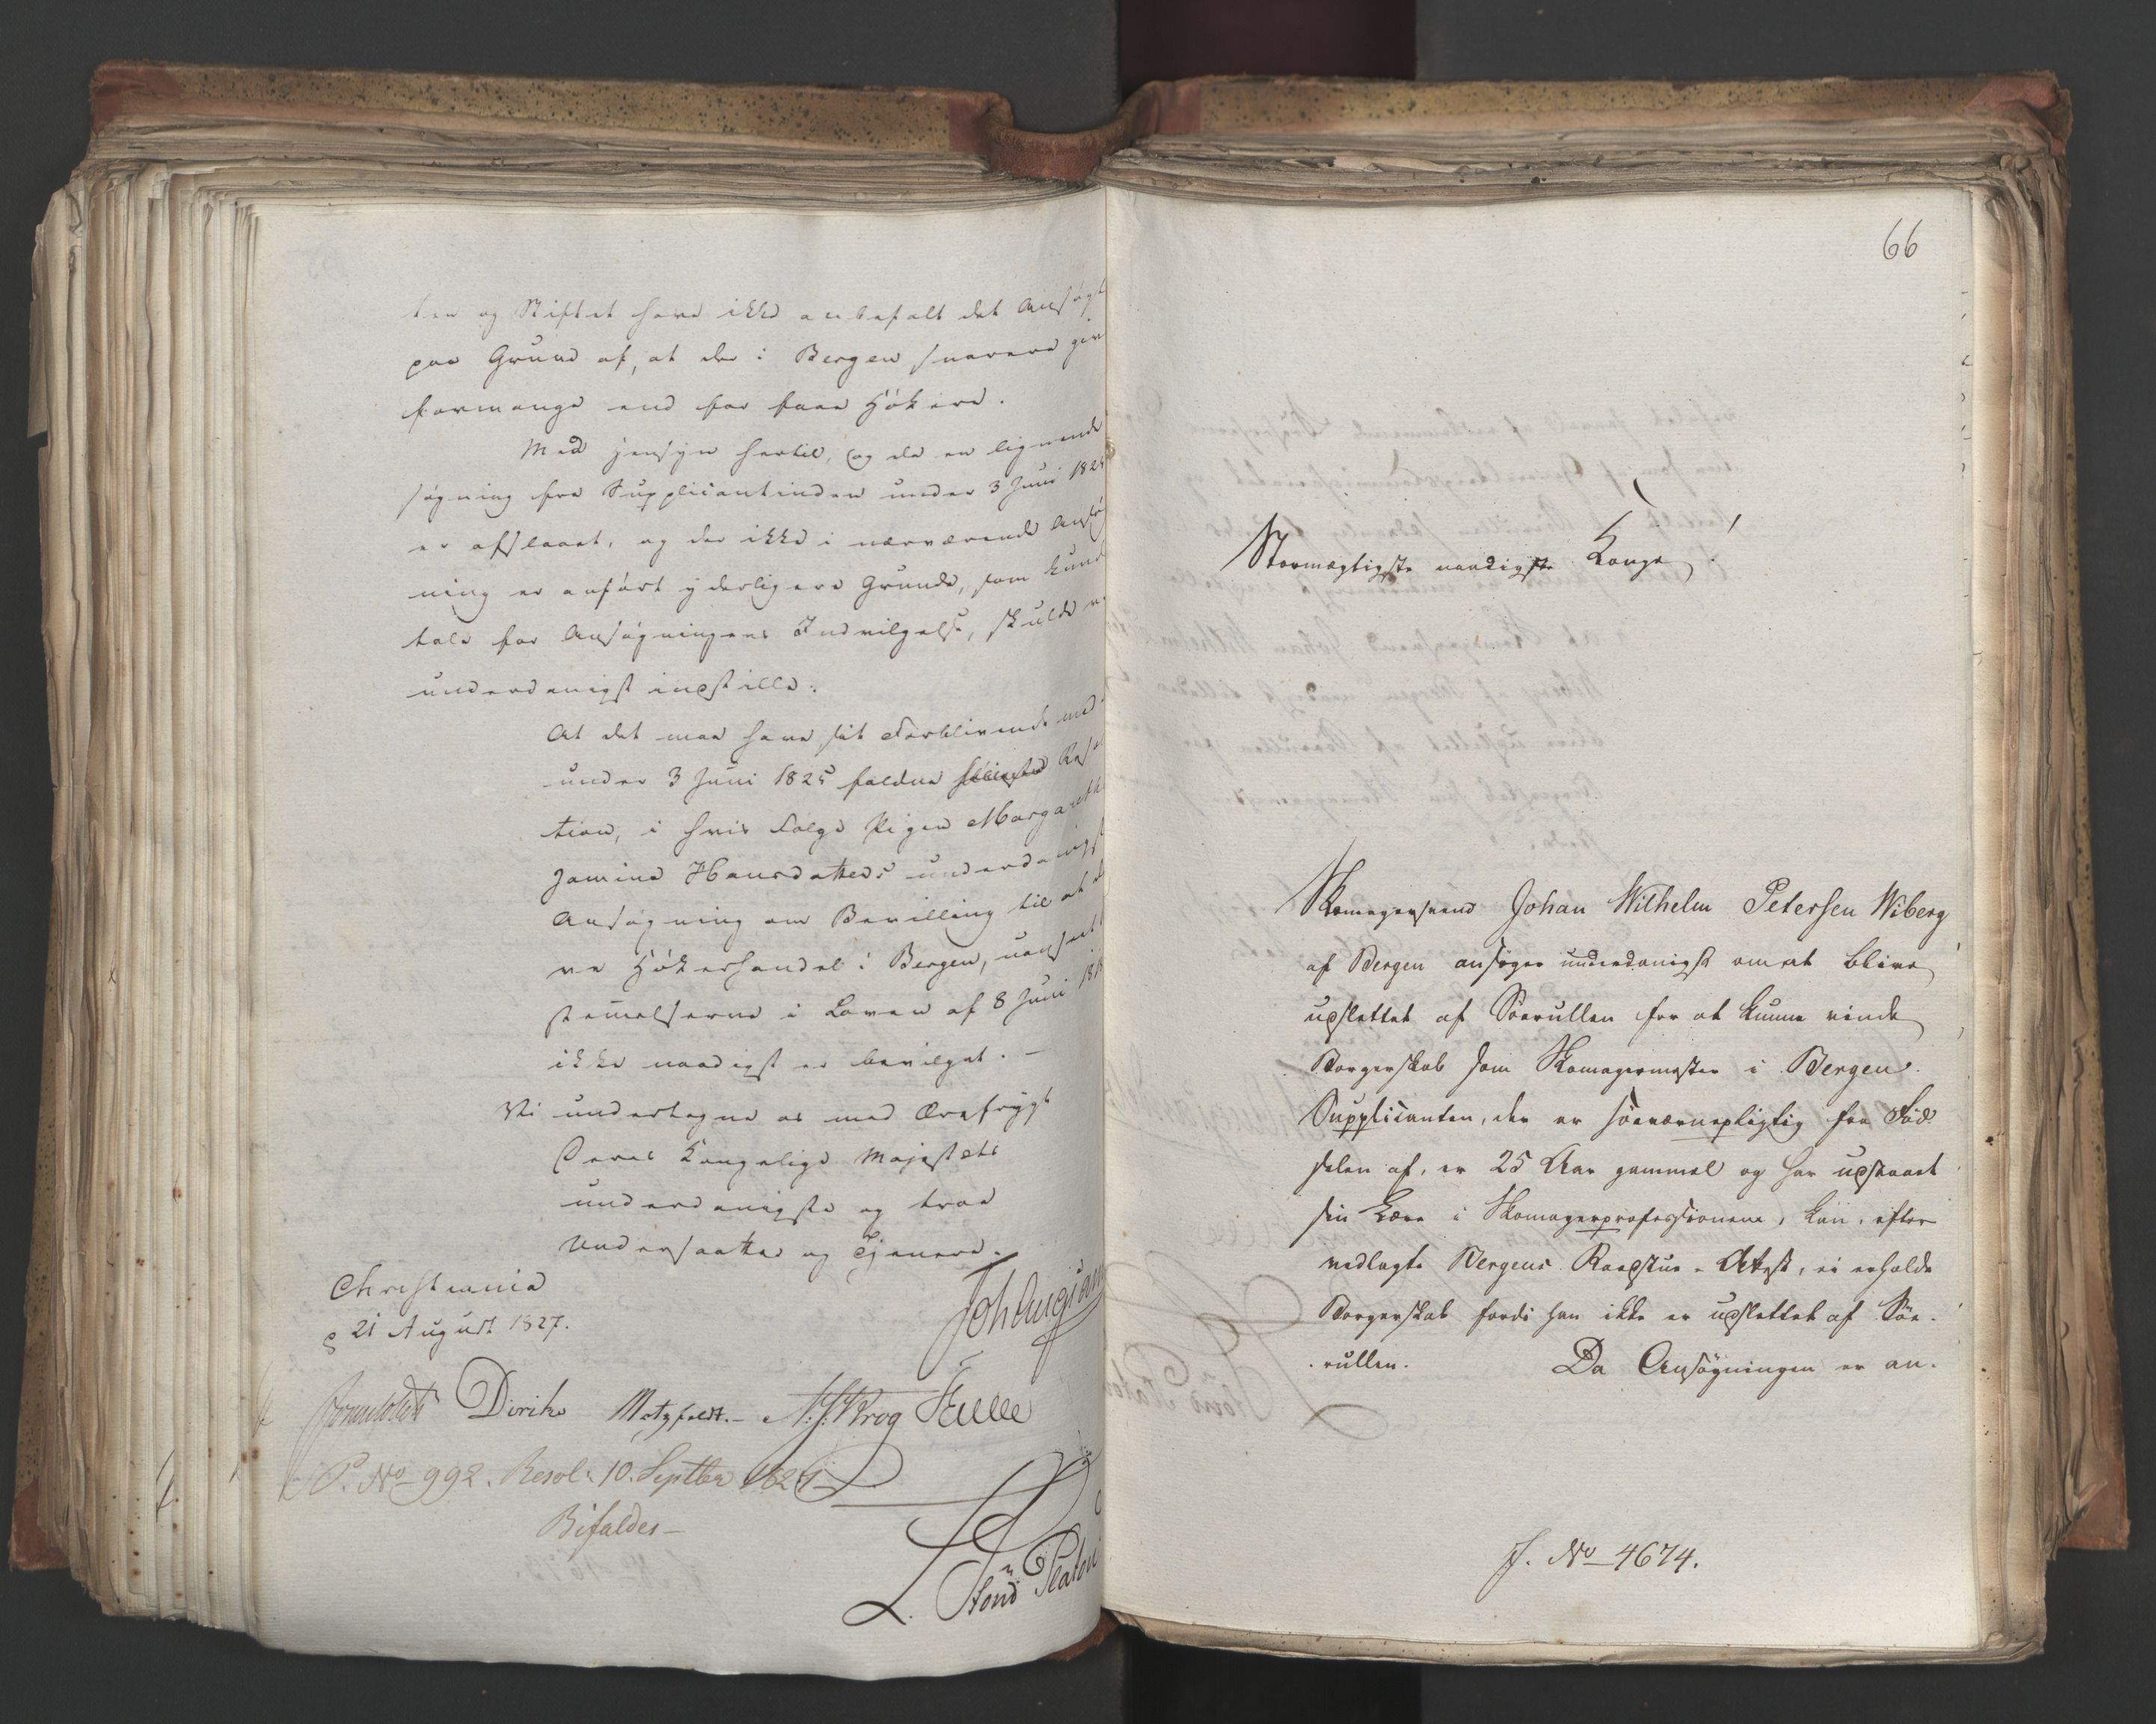 ten og Stiftet have ikke anbefalt det Ansøgt
paa Grund af, at der i Bergen snarere giv
formange end for faae Hökere.
Med Hensyn hertil, og da en lignende
søgning fra Supplicantinden under 3 Juni 182
er afslaaet, og der ikke i nærværende Ansø
ning er anført yderligere Grunde, som kund
tale for Ansøgningens Indvilgelse, skulde v
underdanigst indstille:
At det maa have sit Forblivende med
under 3 Juni 1825 faldne Reso
tion, i hvis Følge Pigen Margareth
Jamine Hansdatters underdanigst
Ansøgning om Bevilling til at d
ve Hökerhandel i Bergen, uanseet
stemmelserne i Loven af 8 Juni 181
ikke naadigst er bevilget. –
Vi undertegne os med Ærefrygt
Deres Kongelige Majestæts
underdanigste og troe
Undersaatter og Tjenere.
Christiania
d 21 August 1827.
Joh Aug Sand
Sommerhielm Diriks Motzfeldt. – N. J. Krog Fasting
P. No 992. Resol: 10. Septbr 1827
Bifaldes –
L. Stoud Platou
66
Stormægtigste naadigste Konge!
Skomagersvend Johan Wilhelm Petersen Wiberg
af Bergen ansøger underdanigst om at blive
udslettet af Søerullen for at kunne vinde
Borgerskab som Skomagermester i Bergen.
Supplicanten, der er søeværnepligtig fra Fød-
selen af, er 25 Aar gammel og har udstaaet
sin Lære i Skomagerprofessionene, kan, efter
vedlagte Bergens Raadstue-Attest, ei erholde
Borgerskab fordi han ikke er udslettet af Söe-
rullen. Da Ansøgningen er an-
J. No 4674.